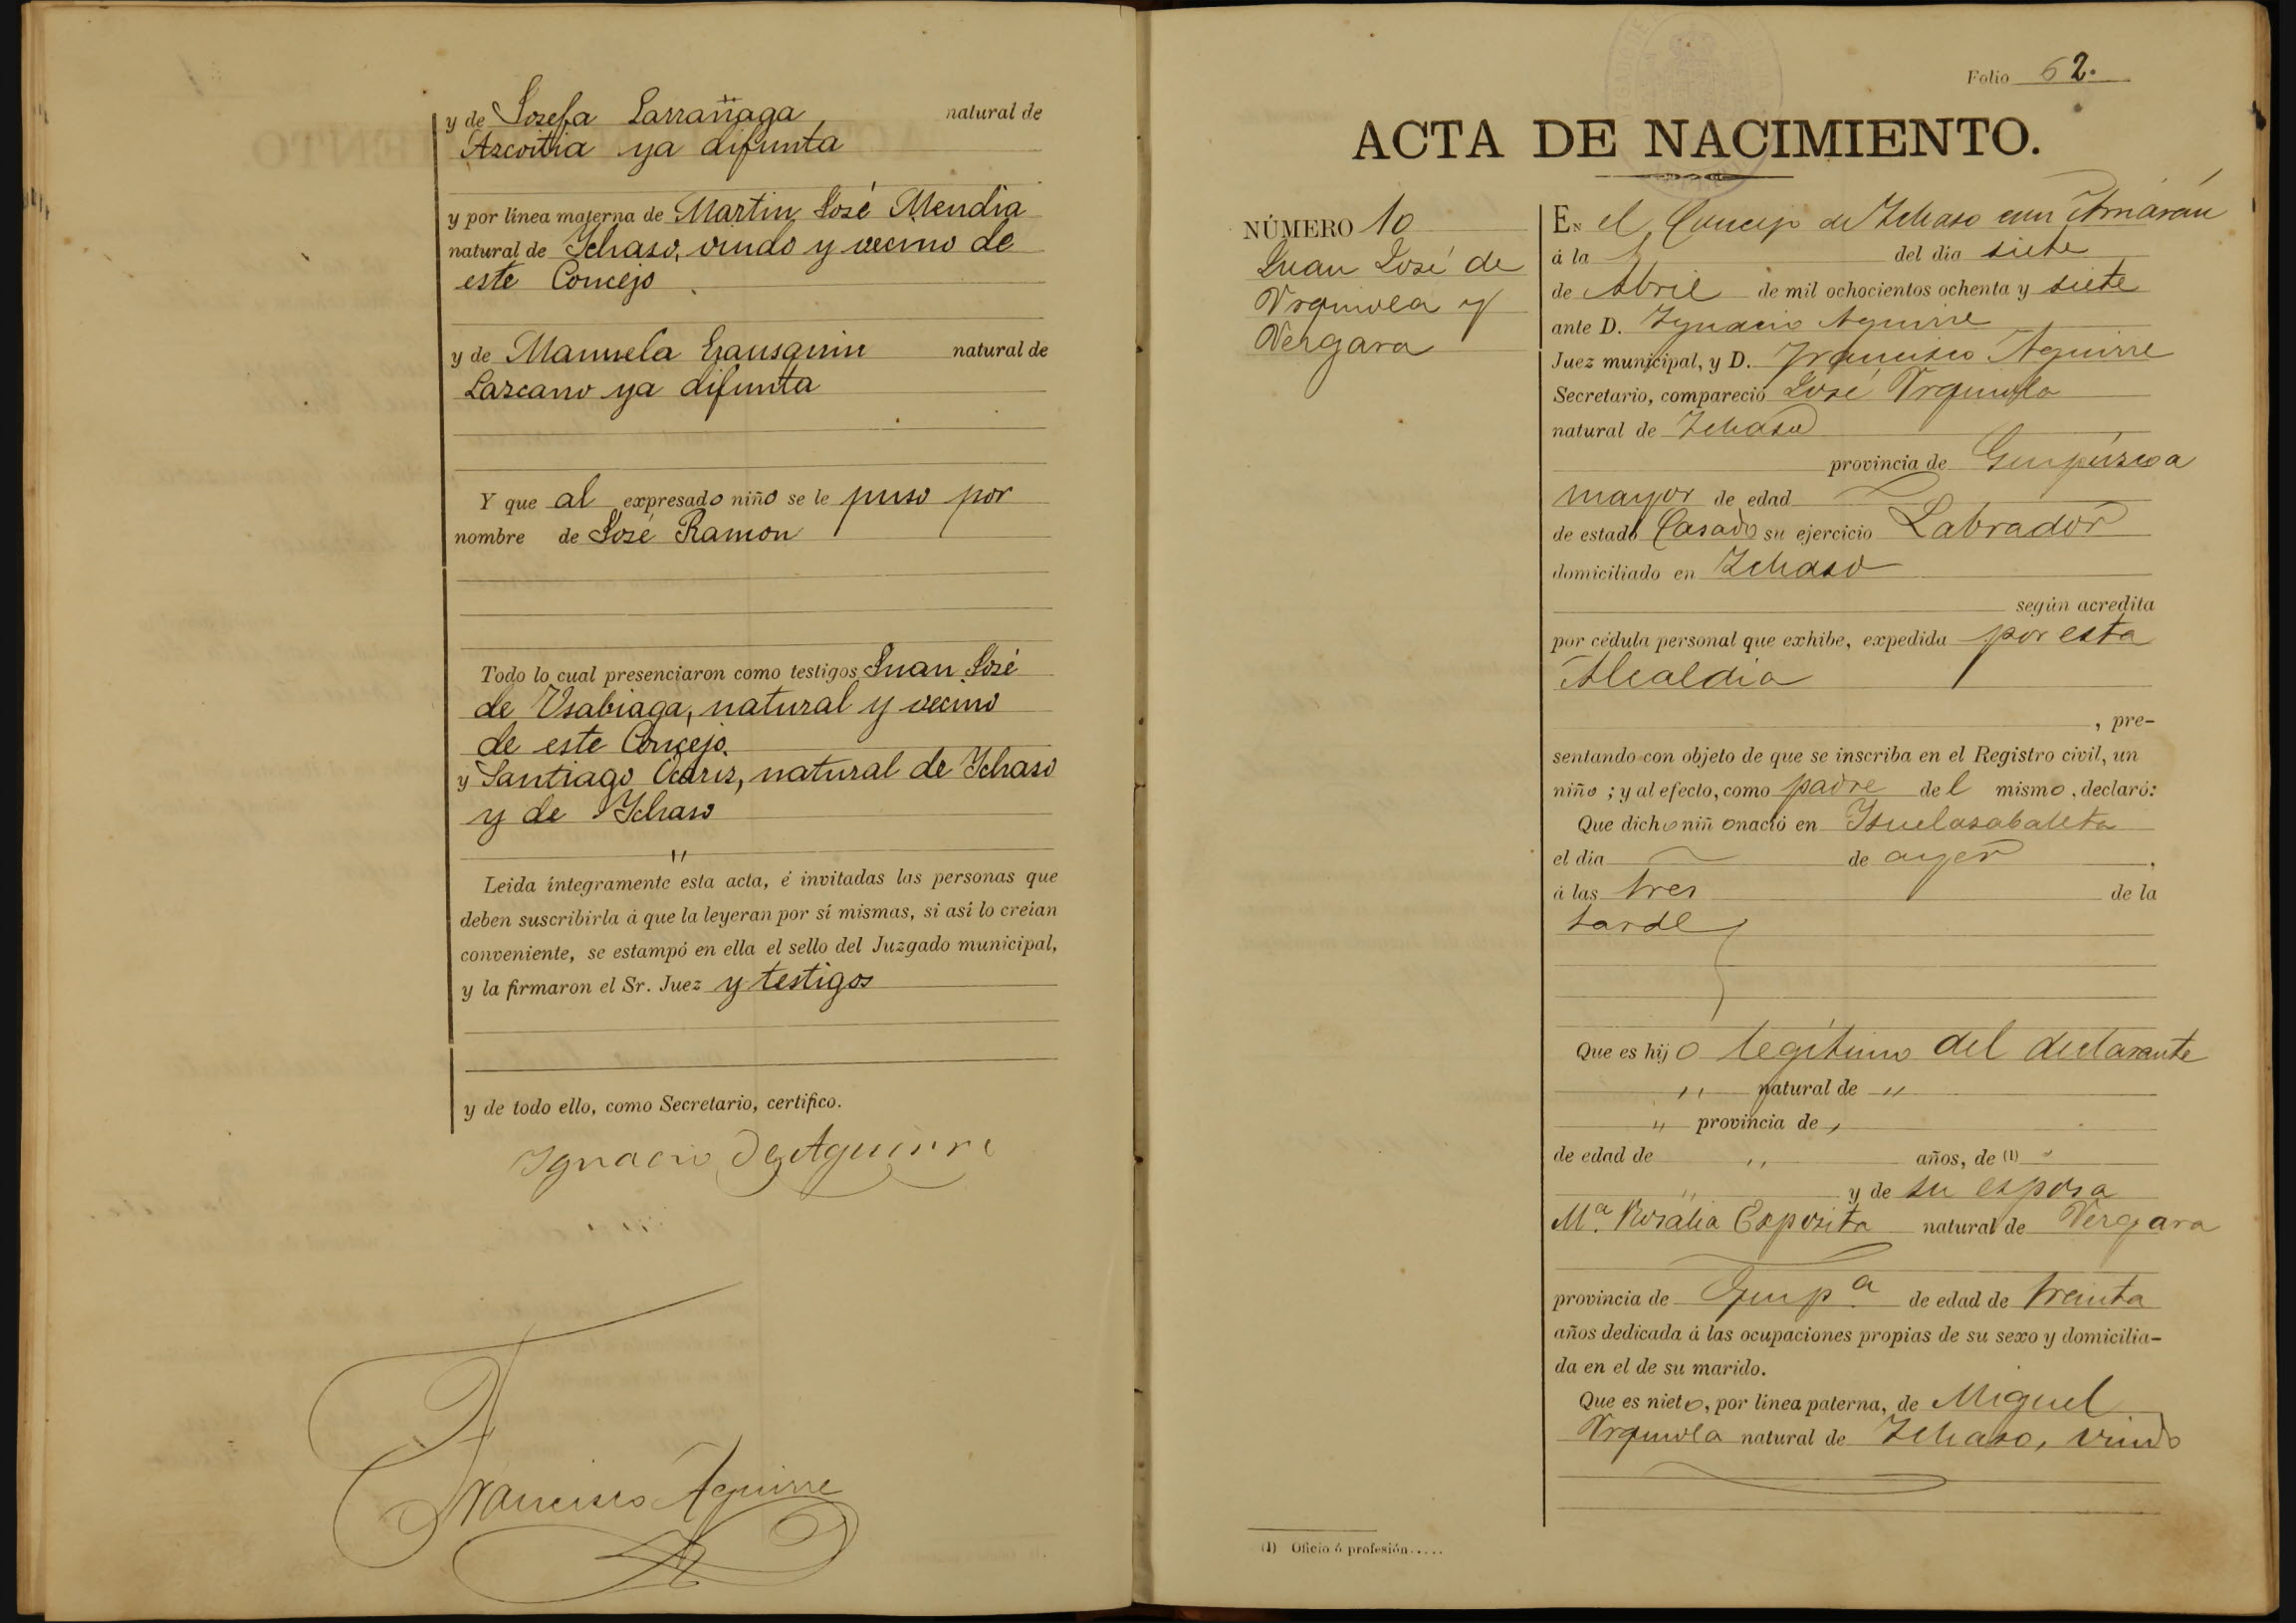 y de Josefa Larrañaga natural de
Azcoitia ya difunta
y por línea materna de Martin José Mendia
natural de Ychaso, viudo y vecino de
este Concejo
y de Manuela Eransquin natural de
Lazcano ya difunta
Y que al expresado niño se le puso por
nombre de José Ramon
Todo lo cual presenciaron como testigos Juan José
de Usabiaga, natural y vecino
de este Concejo.
y Santiago Ocariz, natural de Ychaso
y de Ychaso
"
Leida íntegramente esta acta, é invitadas las personas que
deben suscribirla á que la leyeran por sí mismas, si así lo creían
conveniente, se estampó en ella el sello del Juzgado municipal,
y la firmaron el Sr. Juez y testigos
y de todo ello, como Secretario, certifico.
Ignacio de Aguirre
Francisco Aguirre
Folio 62.
ACTA DE NACIMIENTO.
NÚMERO 10
Juan José de
Urquiola y
Vergara
En el Concejo de Ichaso con Arnáran
á la del dia siete
de Abril de mil ochocientos ochenta y siete
ante D. Ignacio Aguirre
Juez municipal, y D. Francisco Aguirre
Secretario, compareció José Urquiola
natural de Ichaso
provincia de Guipúzcoa
mayor de edad
de estado Casado su ejercicio Labrador
domiciliado en Ichaso
según acredita
por cédula personal que exhibe, expedida por esta
Alcaldia
, pre-
sentando con objeto de que se inscriba en el Registro civil, un
niño ; y al efecto, como padre del mismo, declaró:
Que dicho niño nació en
el día de ayer ,
á las tres de la
tarde
Que es hijo legítimo del declarante
" natural de "
" provincia de "
de edad de " años, de (1) "
" y de su esposa
Mª. Rosalia Exposita natural de Vergara
provincia de Guipª de edad de treinta
años dedicada á las ocupaciones propias de su sexo y domicilia-
da en el de su marido.
Que es nieto, por línea paterna, de Miguel
Urquiola natural de Ichaso, viudo
(1) Oficio ó profesión.....